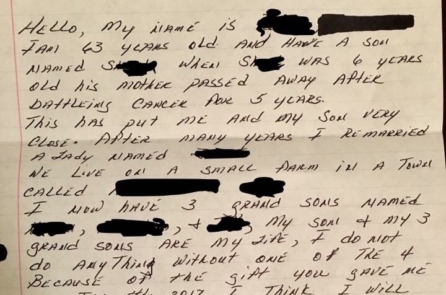 Hello, my name is
I am 63 years old. And have a son
named S when S was 6 years
old his mother passed away after
battleing cancer for 5 years.
This has put me and my son very
close. After many years I remarried
a lady named
We live on a small farm in a town
called
I now have 3 grand sons named
, , & , my son & my 3
grand sons are my life, I do not
do anything without one of the 4
Because of the gift you gave me
2017 I think I will